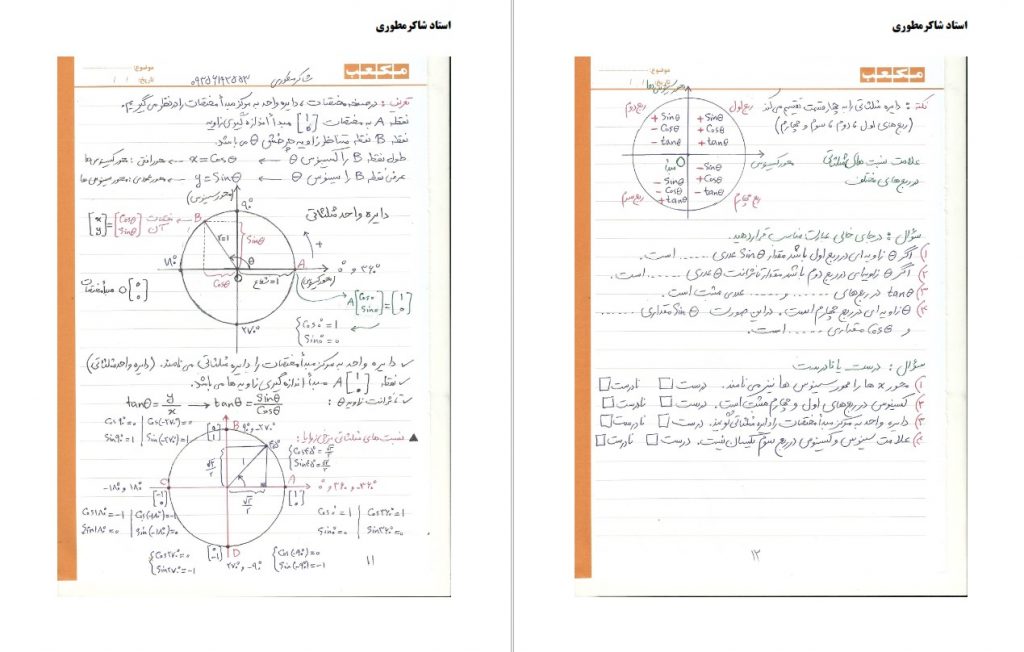 استاد شاکر مطوری
مکعب
موضوع:
تاریخ: / /
شاکر مطوری
تعریف: در صفحه مختصات، دایره واحد به مرکز مبدأ مختصات را در نظر می گیریم.
نقطه A به مختصات [1 0] مبدأ اندازه گیری زاویه
نقطه B نقطه متناظر زاویه چرخش θ می باشد
طول نقطه B را کسینوس θ ← x = Cosθ ← محور افقی: محور کسینوس ها
عرض نقطه B را سینوس θ ← y = Sinθ ← محور عمودی: محور سینوس ها
(محور سینوس)
۹۰°
دایره واحد مثلثاتی
[x y] = [Cosθ Sinθ]
B
r=1
Sinθ
θ
+
۱۸۰°
A
۰° و ۳۶۰°
Cosθ
شعاع=1
(محور کسینوس)
مبدأ مختصات O[0 0]
A[Cos0 Sin0] = [1 0]
۲۷۰°
Cos0° = 1
Sin0° = 0
✓ دایره واحد به مرکز مبدأ مختصات را دایره مثلثاتی می نامند. (دایره واحد مثلثاتی)
✓ نقطه A[1 0] مبدأ اندازه گیری زاویه ها می باشد.
✓ تانژانت زاویه θ: tanθ = y/x → tanθ = Sinθ/Cosθ
▲ نسبت های مثلثاتی برخی زوایا:
Cos۹۰° = 0 | Cos(-۲۷۰°) = 0
Sin۹۰° = 1 | Sin(-۲۷۰°) = 1
[0 1]
B
۹۰° و -۲۷۰°
۴۵°
Cos۴۵° = √۲/۲
Sin۴۵° = √۲/۲
√۲/۲
1
-۱۸۰° و ۱۸۰°
C
A
۰° و ۳۶۰° و -۳۶۰°
[-1 0]
√۲/۲
[1 0]
Cos۱۸۰° = -1 | Cos(-۱۸۰°) = -1
Sin۱۸۰° = 0 | Sin(-۱۸۰°) = 0
Cos0° = 1 | Cos۳۶۰° = 1
Sin0° = 0 | Sin۳۶۰° = 0
[0 -1]
D
۲۷۰° و -۹۰°
Cos۲۷۰° = 0
Sin۲۷۰° = -1
Cos(-۹۰°) = 0
Sin(-۹۰°) = -1
۱۱
استاد شاکر مطوری
مکعب
موضوع:
تاریخ: / /
نکته: دایره مثلثاتی را به چهار قسمت تقسیم می کند
(ربع های اول، دوم، سوم و چهارم)
علامت نسبت های مثلثاتی
در ربع های مختلف
محور سینوس ها
ربع دوم
ربع اول
+ Sinθ
- Cosθ
- tanθ
+ Sinθ
+ Cosθ
+ tanθ
محور کسینوس
O
مبدأ
- Sinθ
- Cosθ
+ tanθ
- Sinθ
+ Cosθ
- tanθ
ربع سوم
ربع چهارم
سؤال: در جای خالی عبارت مناسب قرار دهید.
۱) اگر θ زاویه ای در ربع اول باشد مقدار Sinθ عددی ...... است.
۲) اگر θ زاویه ای در ربع دوم باشد مقدار تانژانت θ عددی ...... است.
۳) tanθ در ربع های ...... و ...... عددی مثبت است.
۴) θ زاویه ای در ربع چهارم است. در این صورت Sinθ مقداری ......
و Cosθ مقداری ...... است.
سؤال: درست یا نادرست
۱) محور x ها را محور سینوس ها نیز می نامند. درست □ نادرست □
۲) کسینوس در ربع های اول و چهارم مثبت است. درست □ نادرست □
۳) دایره واحد به مرکز مبدأ مختصات را دایره مثلثاتی گویند. درست □ نادرست □
۴) علامت سینوس و کسینوس در ربع سوم یکسان نیست. درست □ نادرست □
۱۲